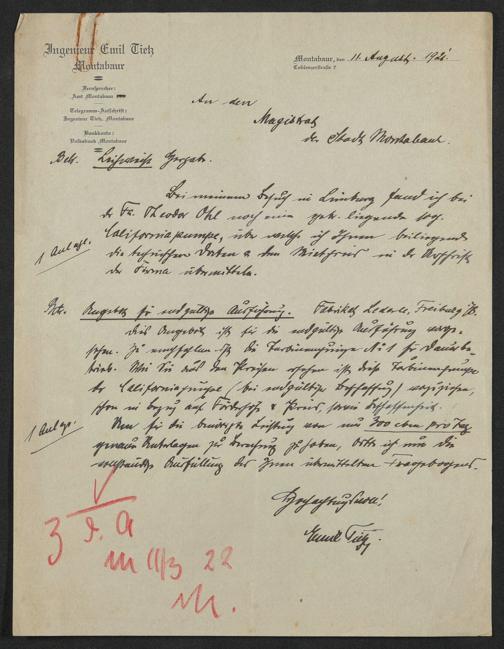 Ingenieur Emil Tietz
Montabaur
Fernsprecher:
Amt Montabaur
Telegramm-Aufschrift:
Ingenieur Tietz, Montabaur
Bankkonto:
Volksbank Montabaur
Montabaur, den 11. August. 192
Coblenzerstraße 7
An den
Magistrat
der Stadt Montabaur.
Betr. Leihweise
Bei meinem Besuch in Limburg fand ich bei
der Fa. Theodor Ohl noch eine liegende sog.
Californiapumpe, über welche ich Ihnen beiliegend
1 Anlage.
die technischen Daten & den Mietpreis in der Abschrift
der Firma übermittele.
Betr. Angebot für endgültige Ausführung. Fabrikat Lederle, Freiburg i/B.
dies Angebot ist für die endgültige Ausführung vorge-
sehen. Zu empfehlen ist die Turbinenpumpe No 1 für Dauerbe-
trieb. Wie Sie aus den Preisen ersehen ist diese Turbinenpumpe
der Californiapumpe (bei endgültiger Beschaffung) vorzuziehen,
schon in bezug auf Förderhöhe & Preis, sowie
1 Anlage.
Um für die benötigte Leistung von nur 200 cbm pro Tag
genaue Unterlagen zur Berechnung zu haben, bitte ich um die
vollständige Ausfüllung des Ihnen übermittelten Fragebogens.
Hochachtungsvoll!
Emil Tietz.
z. d. A
22